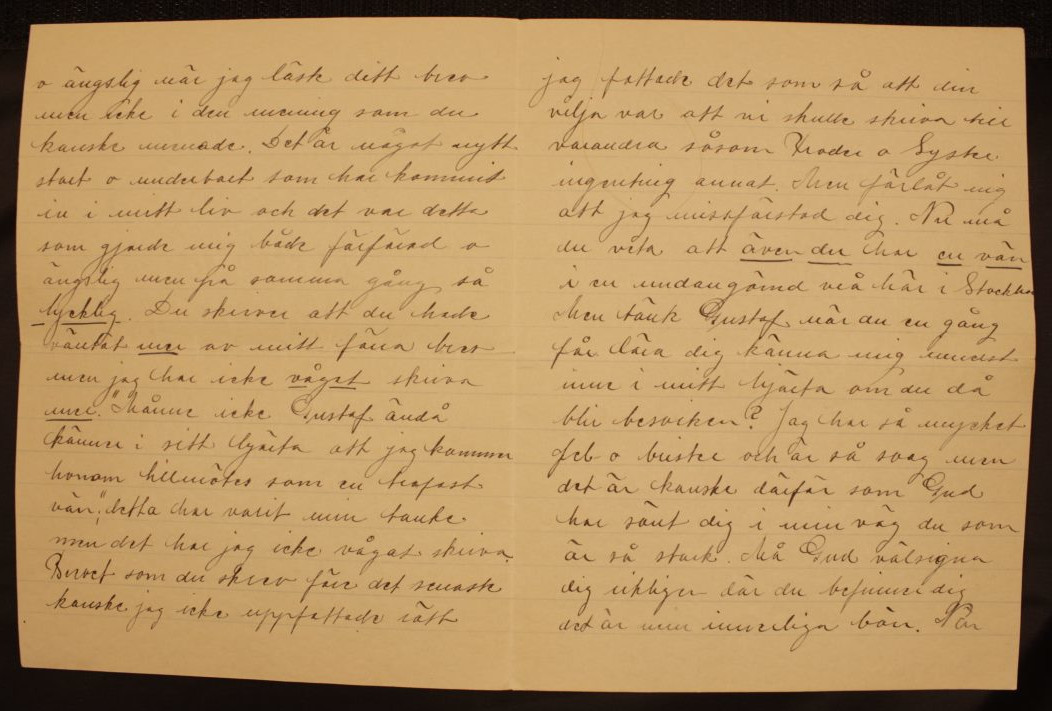 o ängslig när jag läste ditt brev
men icke i den mening som du
kanske menade. Det är något nytt
stort o underbart som har kommit
in i mitt liv och det var detta
som gjorde mig både förfärad o
ängslig men på samma gång så
lycklig. Du skriver att du hade
väntat mer av mitt förra brev
men jag har icke vågat skriva
mer. "Månne icke Gustaf ändå
känner i sitt hjärta att jag kommer
honom tillmötes som en trofast
vän", detta har varit min tanke
men det har jag icke vågat skriva.
Brevet som du skrev före det senaste
kanske jag icke uppfattade rätt
jag fattade det som så att din
vilja var att vi skulle skriva till
varandra såsom Broder o Syster
ingenting annat. Men förlåt mig
att jag missförstod dig. Nu må
du veta att även du har en vän
i en undangömd vrå här i Stockholm
Men tänk Gustaf när du en gång
får lära dig känna mig innerst
inne i mitt hjärta om du då
blir besviken? Jag har så mycket
fel o brister och är så svag men
det är kanske därför som Gud
har sänt dig i min väg du som
är så stark. Må Gud välsigna
dig rikligen där du befinner dig
det är min innerliga bön. När